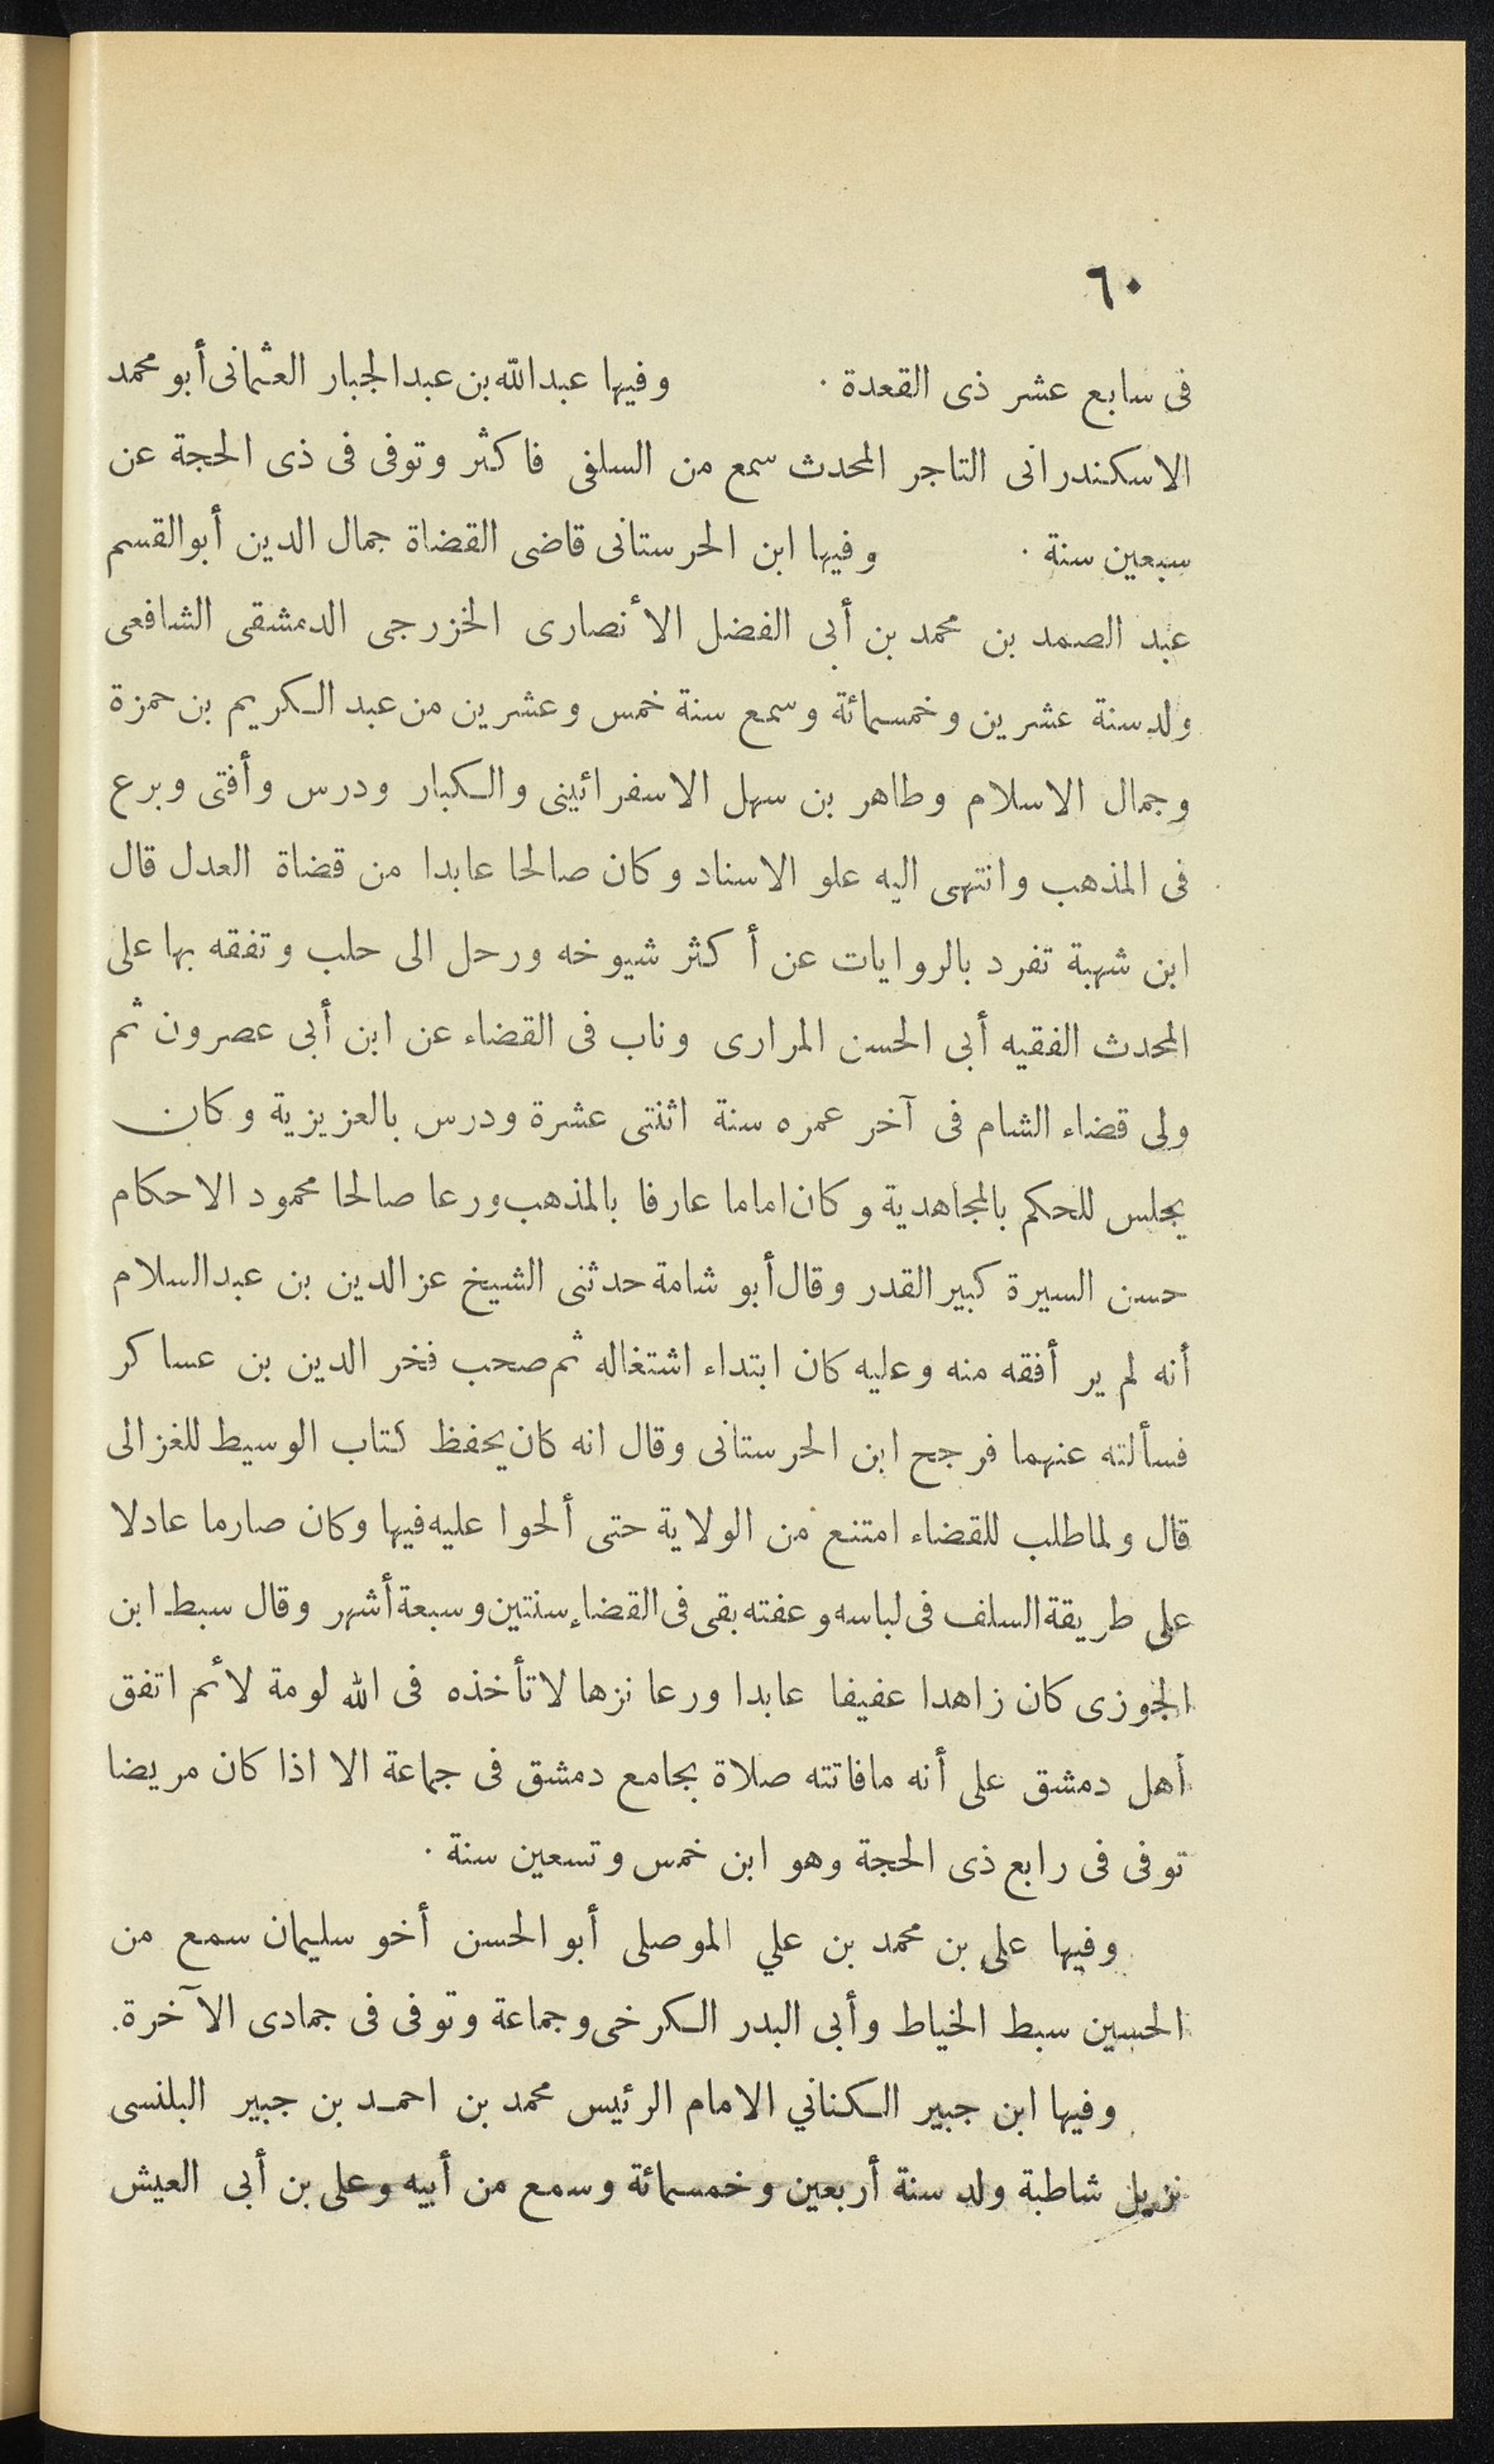 ٦٠
فى سابع عشر ذى القعدة ٠ وفيها عبدالله بن عبدالجبار العثمانى أبو محمد
الاسكندرانى التاجر المحدث سمع من السلفى فاكثر وتوفى فى ذى الحجة عن
سبعين سنة ٠ وفيها ابن الحرستانى قاضى القضاة جمال الدين أبوالقسم
عبد الصمد بن محمد بن أبى الفضل الأنصارى الخزرجى الدمشقى الشافعى
ولد سنة عشرين وخمسمائة وسمع سنة خمس وعشرين من عبد الكريم بن حمزة
وجمال الاسلام وطاهر بن سهل الاسفرائينى والكبار ودرس وأفتى وبرع
فى المذهب وانتهى اليه علو الاسناد وكان صالحا عابدا من قضاة العدل قال
ابن شهبة تفرد بالروايات عن أكثر شيوخه ورحل الى حلب وتفقه بها على
المحدث الفقيه أبى الحسن المرارى وناب فى القضاء عن ابن أبى عصرون ثم
ولى قضاء الشام فى آخر عمره سنة اثنتى عشرة ودرس بالعزيزية وكان
يجلس للحكم بالمجاهدية وكان اماما عارفا بالمذهب ورعا صالحا محمود الاحكام
حسن السيرة كبير القدر وقال أبو شامة حدثنى الشيخ عز الدين بن عبدالسلام
أنه لم ير أفقه منه وعليه كان ابتداء اشتغاله ثم صحب فخر الدين بن عساكر
فسألته عنهما فرجح ابن الحرستانى وقال انه كان يحفظ كتاب الوسيط للغزالى
قال ولما طلب للقضاء امتنع من الولاية حتى ألحوا عليه فيها وكان صارما عادلا
على طريقة السلف فى لباسه وعفته بقى فى القضاء سنتين وسبعة أشهر وقال سبط ابن
الجوزى كان زاهدا عفيفا عابدا ورعا نزها لا تأخذه فى الله لومة لائم اتفق
أهل دمشق على أنه مافاتته صلاة بجامع دمشق فى جماعة الا اذا كان مريضا
توفى فى رابع ذى الحجة وهو ابن خمس وتسعين سنة ٠
وفيها على بن محمد بن علي الموصلى أبو الحسن أخو سليمان سمع من
الحسين سبط الخياط وأبى البدر الكرخى وجماعة وتوفى فى جمادى الآخرة.
وفيها ابن جبير الكناني الامام الرئيس محمد بن احمد بن جبير البلنسى
نزيل شاطبة ولد سنة أربعين وخمسمائة وسمع من أبيه وعلى بن أبى العيش